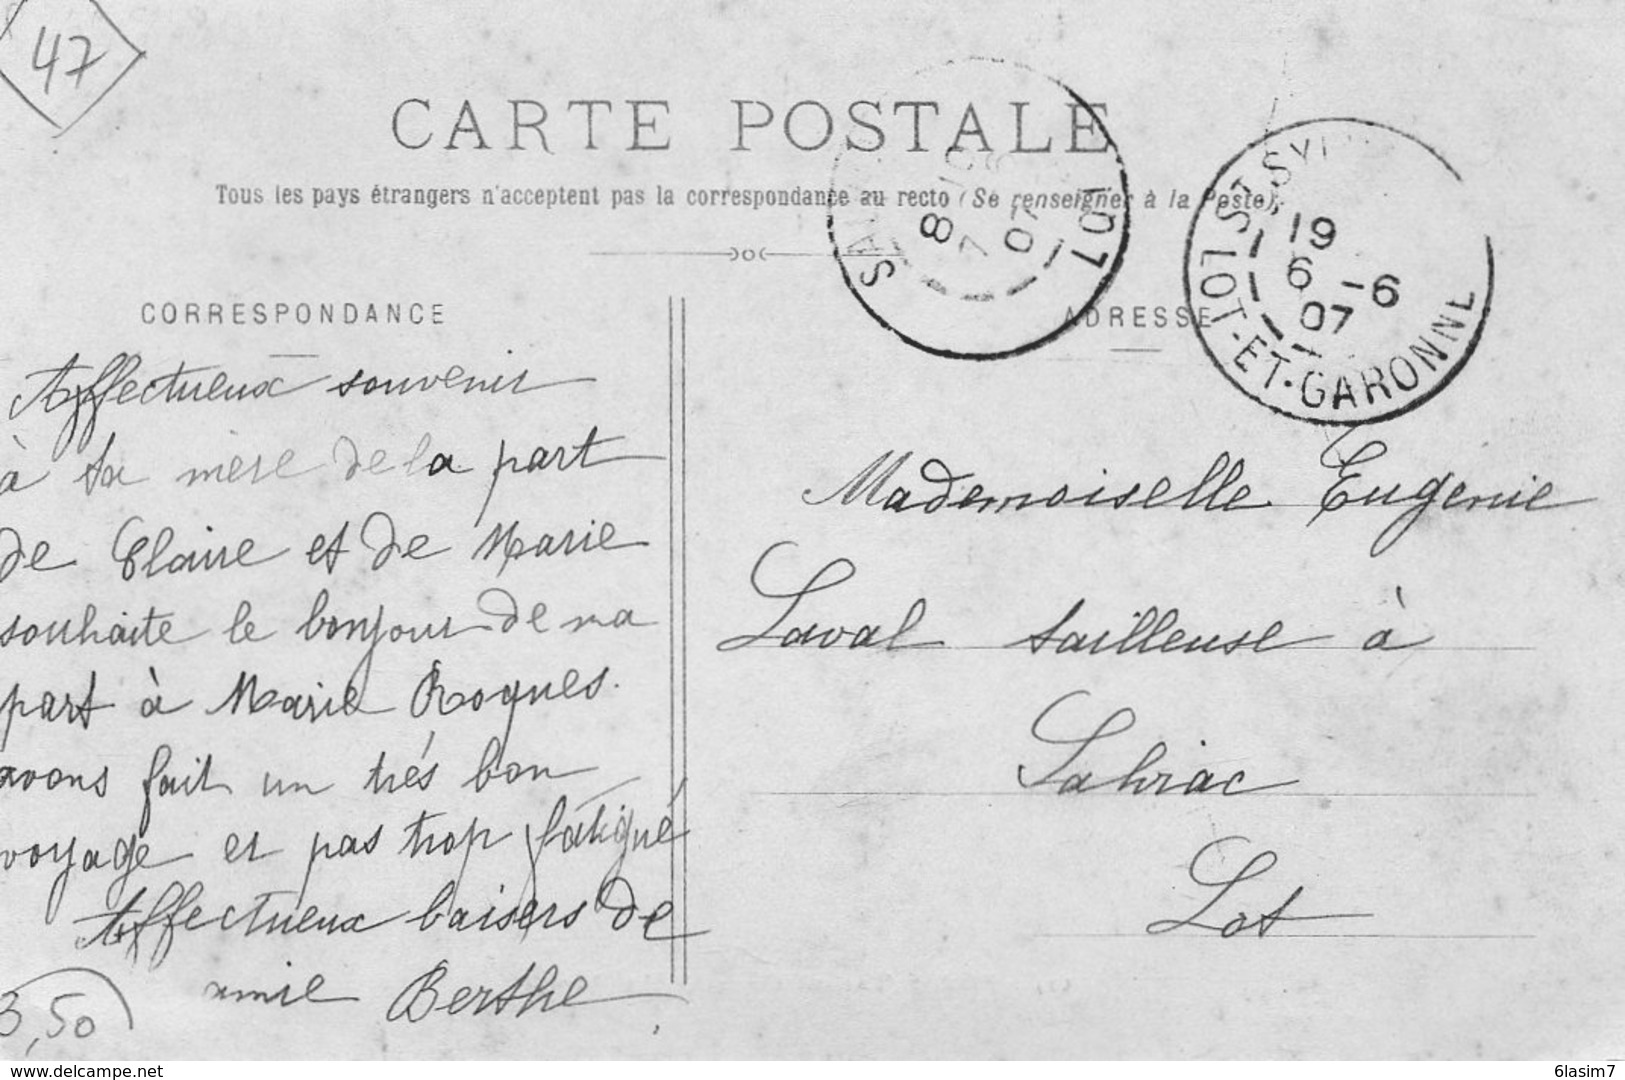 47
CARTE POSTALE
Tous les pays étrangers n'acceptent pas la correspondance au recto (Se renseigner à la Poste).
LOT
8
7
07
ST SYL
19
6 -6
07
LOT-ET-GARONNE
CORRESPONDANCE
ADRESSE
Affectueux souvenir
à ta mère de la part
de Claire et de Marie
souhaite le bonjour de ma
part à Marie Roques.
avons fait un très bon
voyage et pas trop fatigué
Affectueux baisers de
amie Berthe
Mademoiselle Eugenie
Laval tailleuse à
Salviac
Lot
3,50
www.delcampe.net
6lasim7